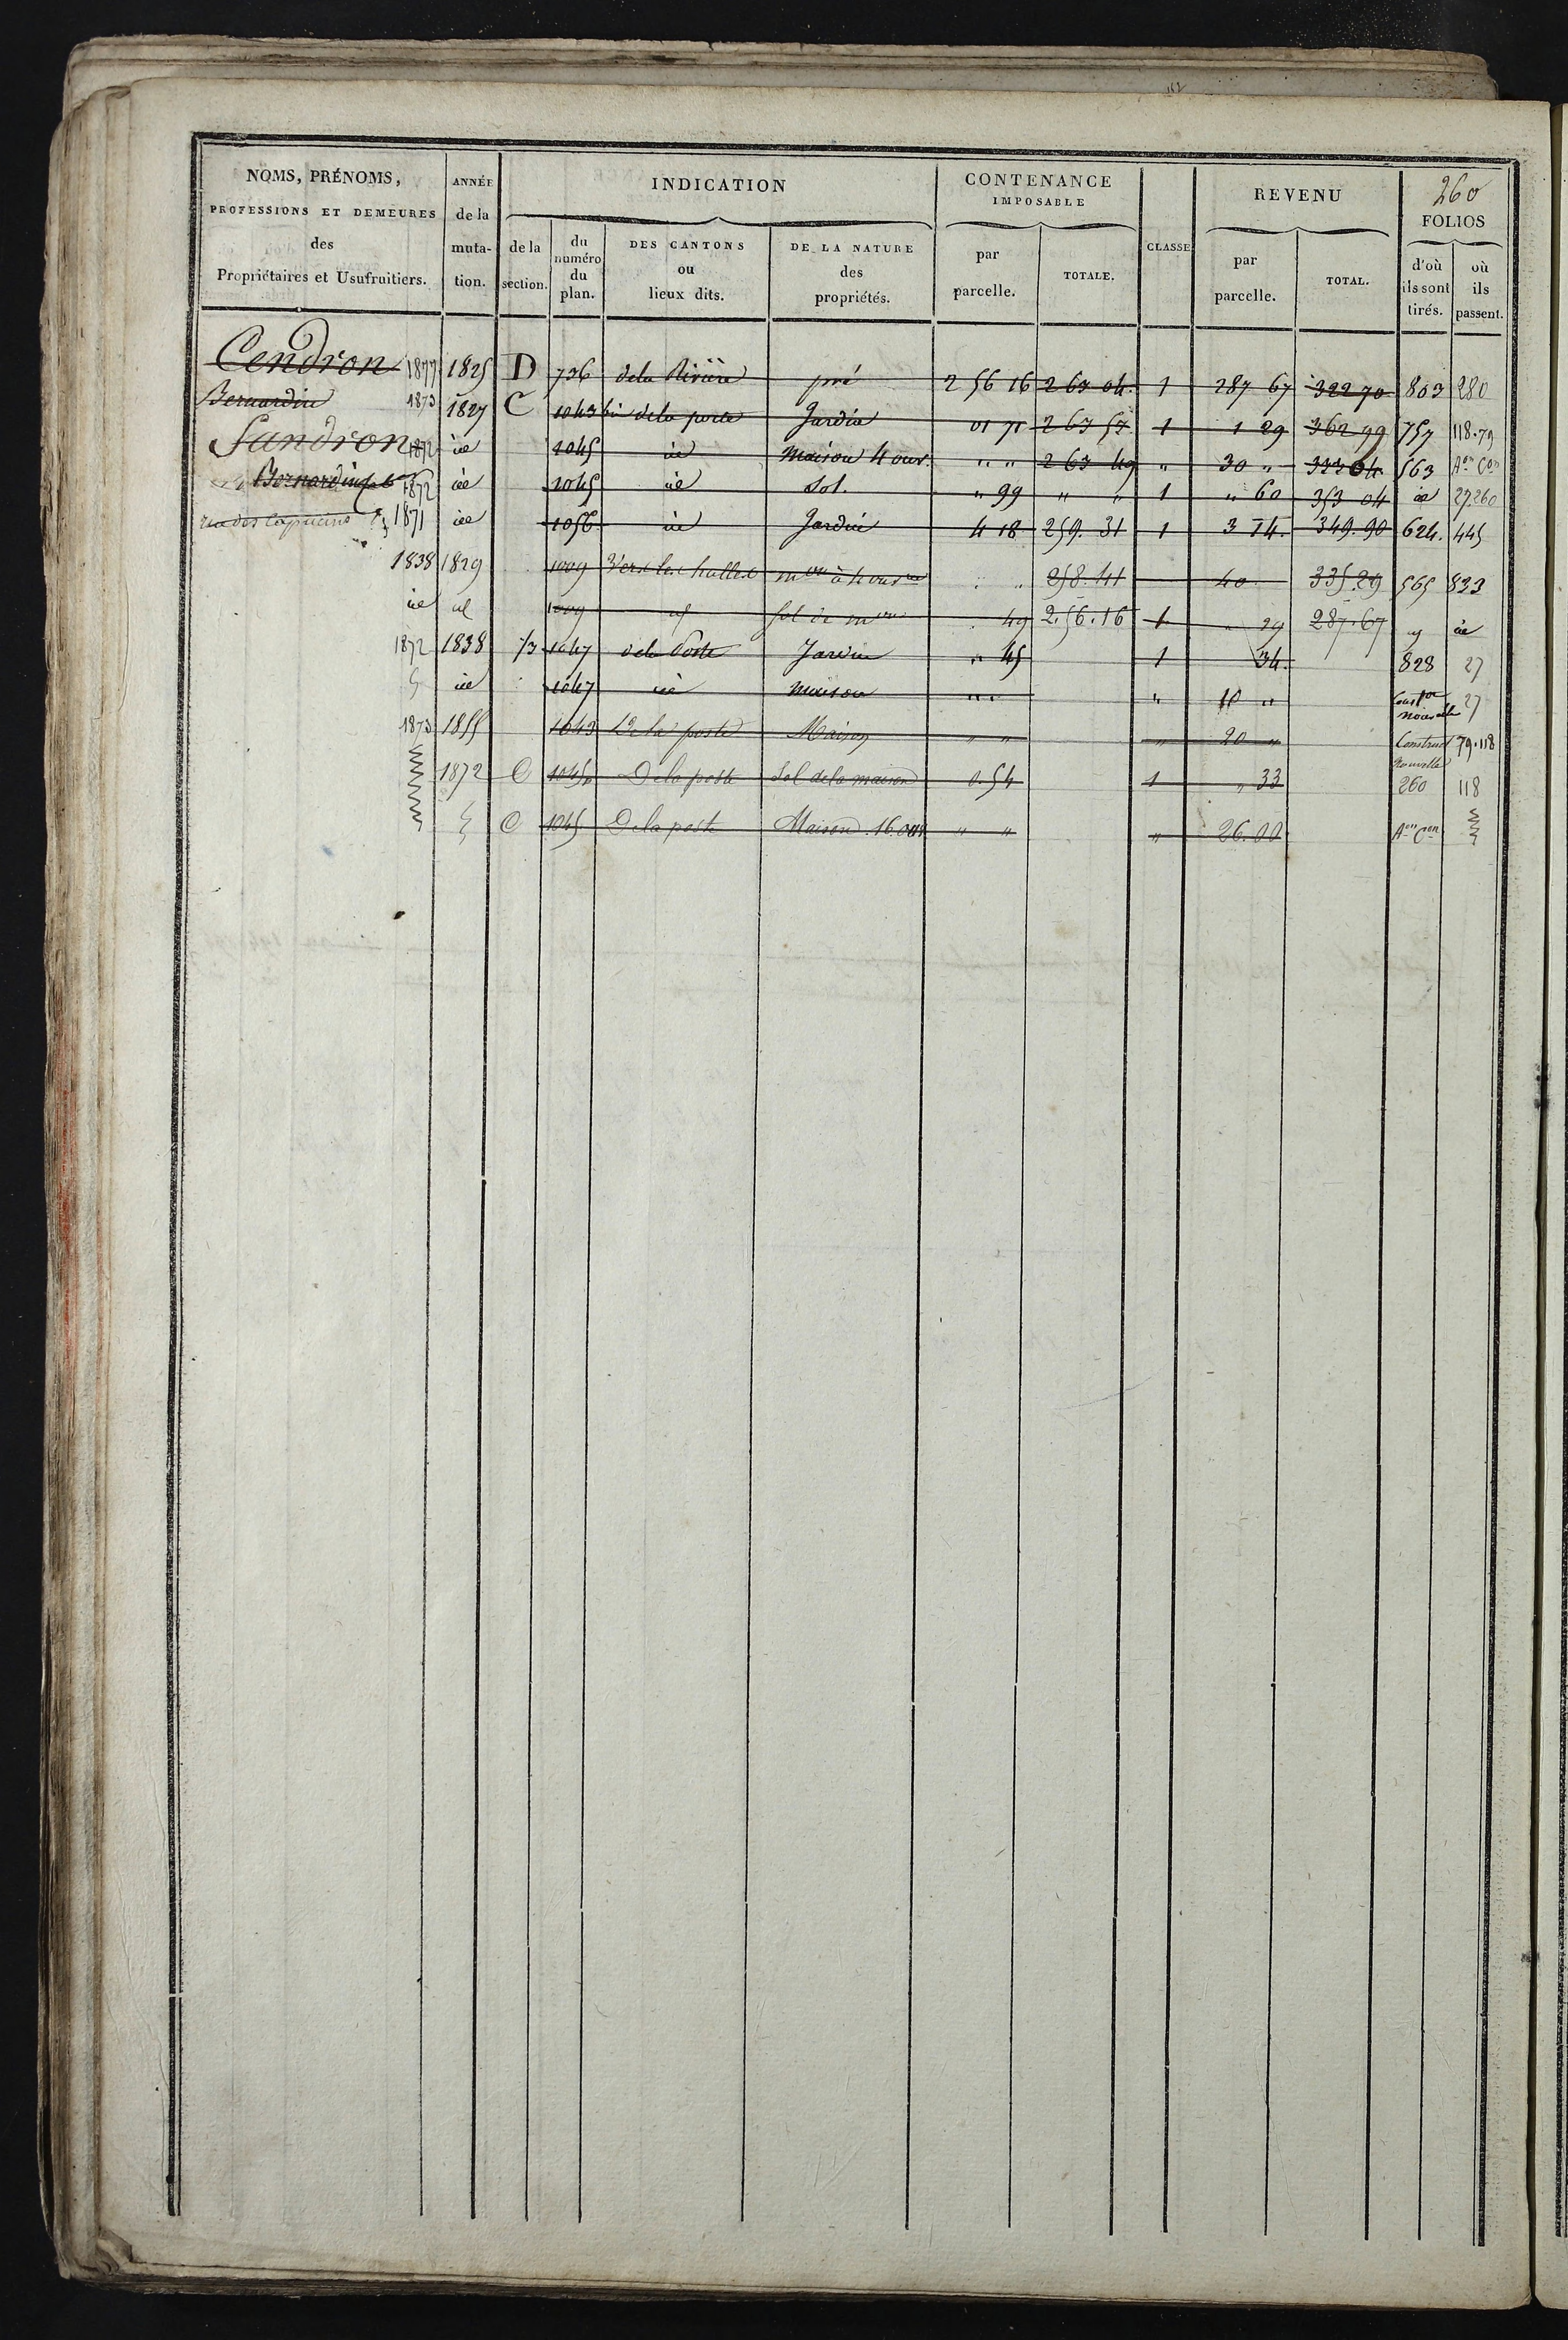 260
NOMS, PRÉNOMS, PROFESSIONS ET DEMEURES des Propriétaires et Usufruitiers.
ANNÉE de la muta-tion.
INDICATION
de la section.
du numéro du plan.
DES CANTONS ou lieux dits.
DE LA NATURE des propriétés.
CONTENANCE IMPOSABLE
par parcelle.
TOTALE.
CLASSE
REVENU
par parcelle.
TOTAL.
FOLIOS
d'où ils sont tirés.
où ils passent.
Cendron 1877 1825 D 736 dela Rivière pré 2 56 16 2 63 04 1 287 67 322 70 803 280
Bernardin 1873 1827 C 1043 bis dela porte Jardin 01 71 2 63 53 1 1 29 362 99 757 118.79
Sandron 1872 id 1045 id Maison 4 ouv. " " 2 63 49 " 30 " 333 04 563 Aon Con
Bernardin 1872 id 1045 id Sol. " 99 " " 1 " 60 353 04 id 27.260
rue des Capucins 1871 id 1056 id Jardin 4 18 259.31 1 3 14. 349.90 624. 445
1838 1829 1009 Vers les halles mon à 4 ouvres " " 258.41 40 335.29 565 833
id id 1009 id Sol de mon 49 2.56.16 1 " 29 287.67 id id
1872 1838 1047 dela Poste Jardin " 45 1 34. 828 27
id 1047 id Maison " " " 10 " Conston nouvelle 27
1873 1855 1043 De la poste Maison " " " 20 " Construct nouvelle 79.118
1872 C 1045p De la poste Sol de la maison 0.54 1 " 33 260 118
C 1045 De la poste Maison 16 ouv. " " " 26.00 Aon Con